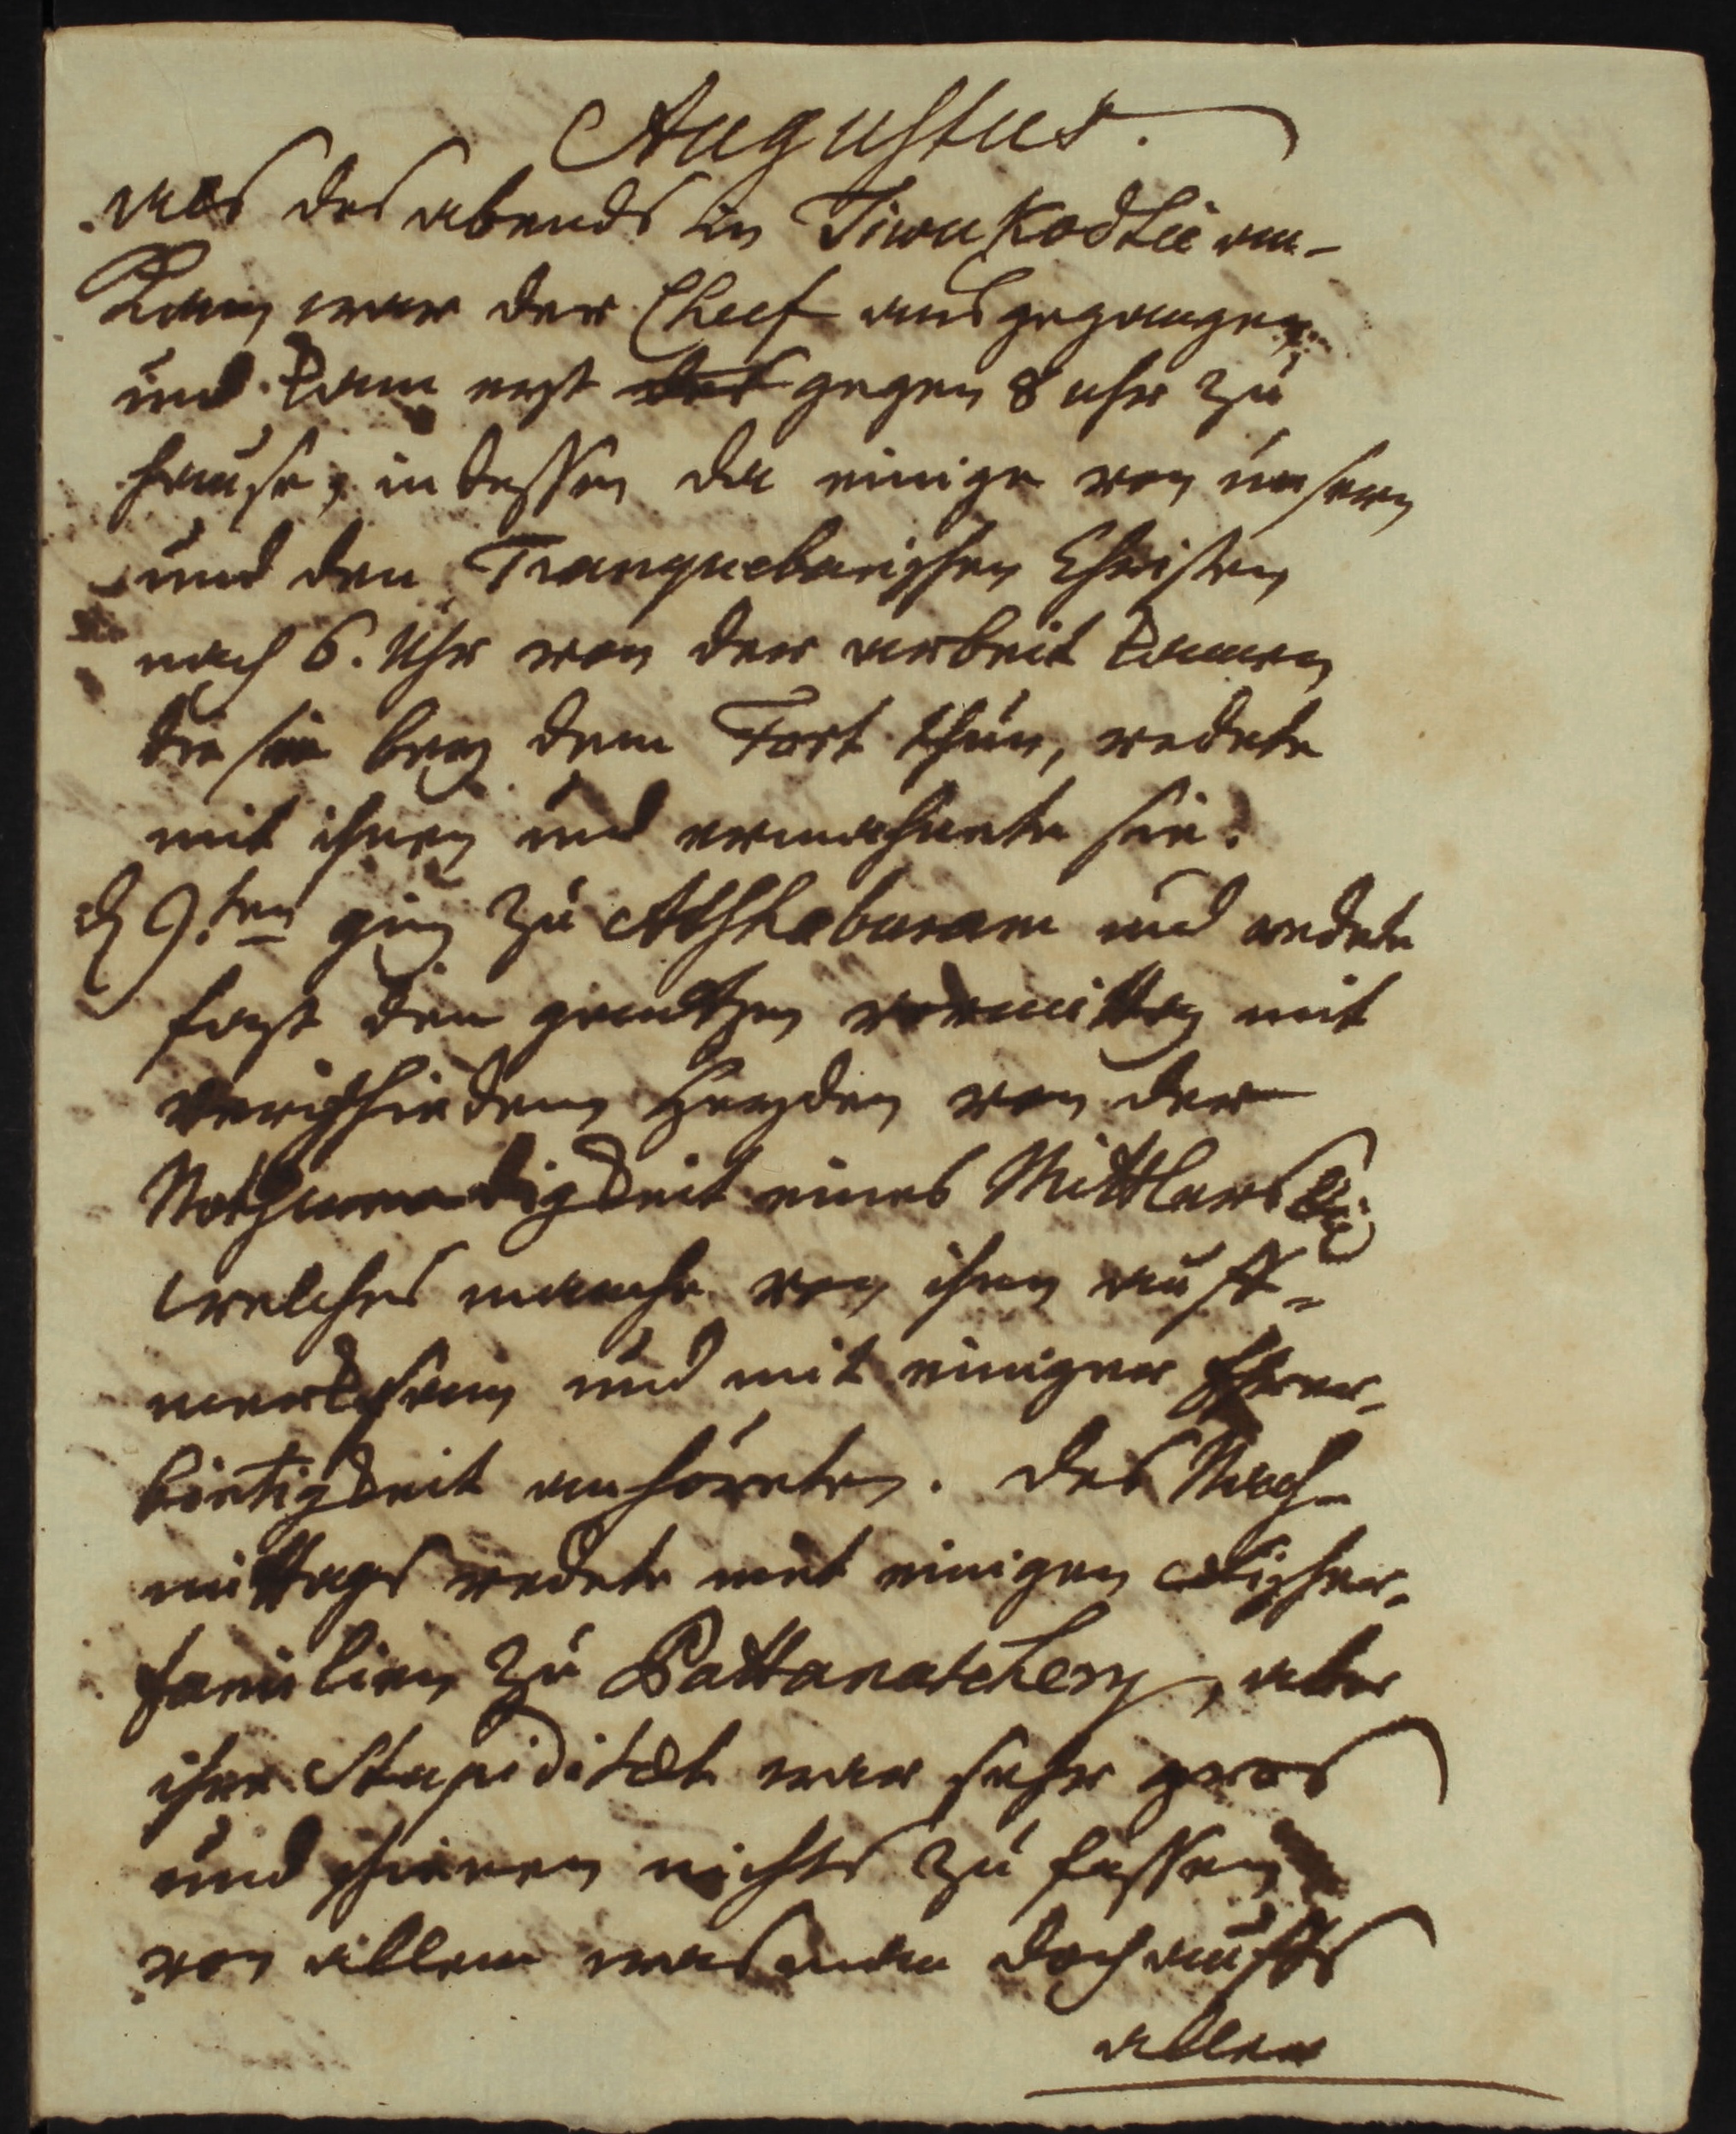 Augustus.
als des abends in Tirukodlie an-
kam war der Cheef ausgegangen
und kam erst des gegen 8 uhr zu
hause, indessen da einige von unsern
und den Tranquebarischen Christen
nach 6. Uhr von der arbeit kamen
die sie bey dem Fort thun, redete
mit ihnen und ermahnete sie.
d 9.ten ging zu und redete
fast den gantzen vormittag mit
verschiedenen Heyden von der
Nothwendigkeit eines Mittlers
welches manche von ihnen auff-
mercksam und mit einiger Ehrer-
bietigkeit anhöreten. des Nach-
mittags redete mit einigen Fischer-
familien zu , aber
ihre Stupiditæt war sehr gros
und schienen nichts zu fassen
von allem was man doch auffs
aller